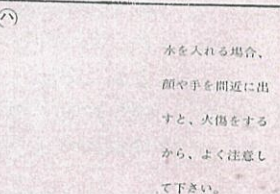 ㋩
水を入れる場合、
顔や手を間近に出
すと、火傷をする
から、よく注意し
て下さい。